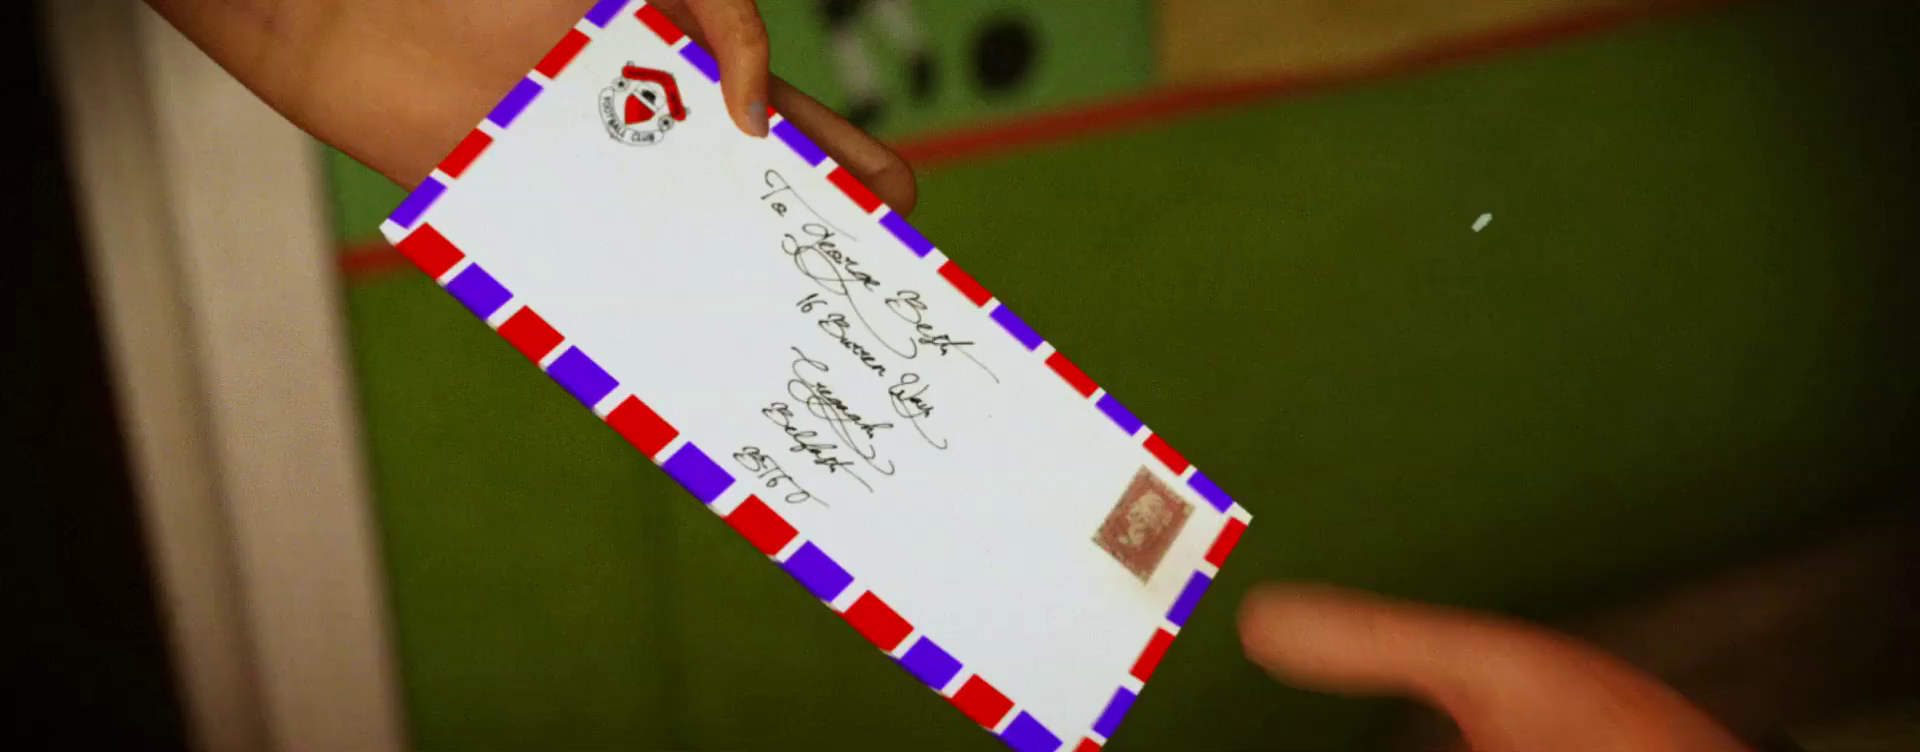 FOOTBALL CLUB
To George Best
16 Burren Way
Cregagh
Belfast
BT6 0